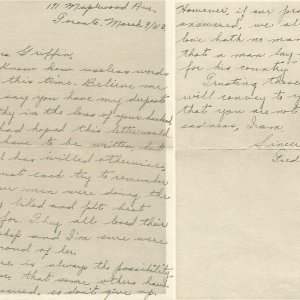 171 Maplewood Ave,
Toronto. March 9/43
Griffin,
Know how useless words
this time. Believe me
say you have my deepest
thy in the loss of your husband,
had hoped this letter would
have to be written but
d has willed otherwise,
must each try to remember
our men were doing the
liked and felt best
for. They all loved their
ship and I'm sure were
proud of her.
re is always the possibility
that some others have
so don't give up
However, if our
answered, we
love hath no ma
that a man lay
for his country
Trusting th
will convey to y
that you are not
sadness, I am,
Since
Fred